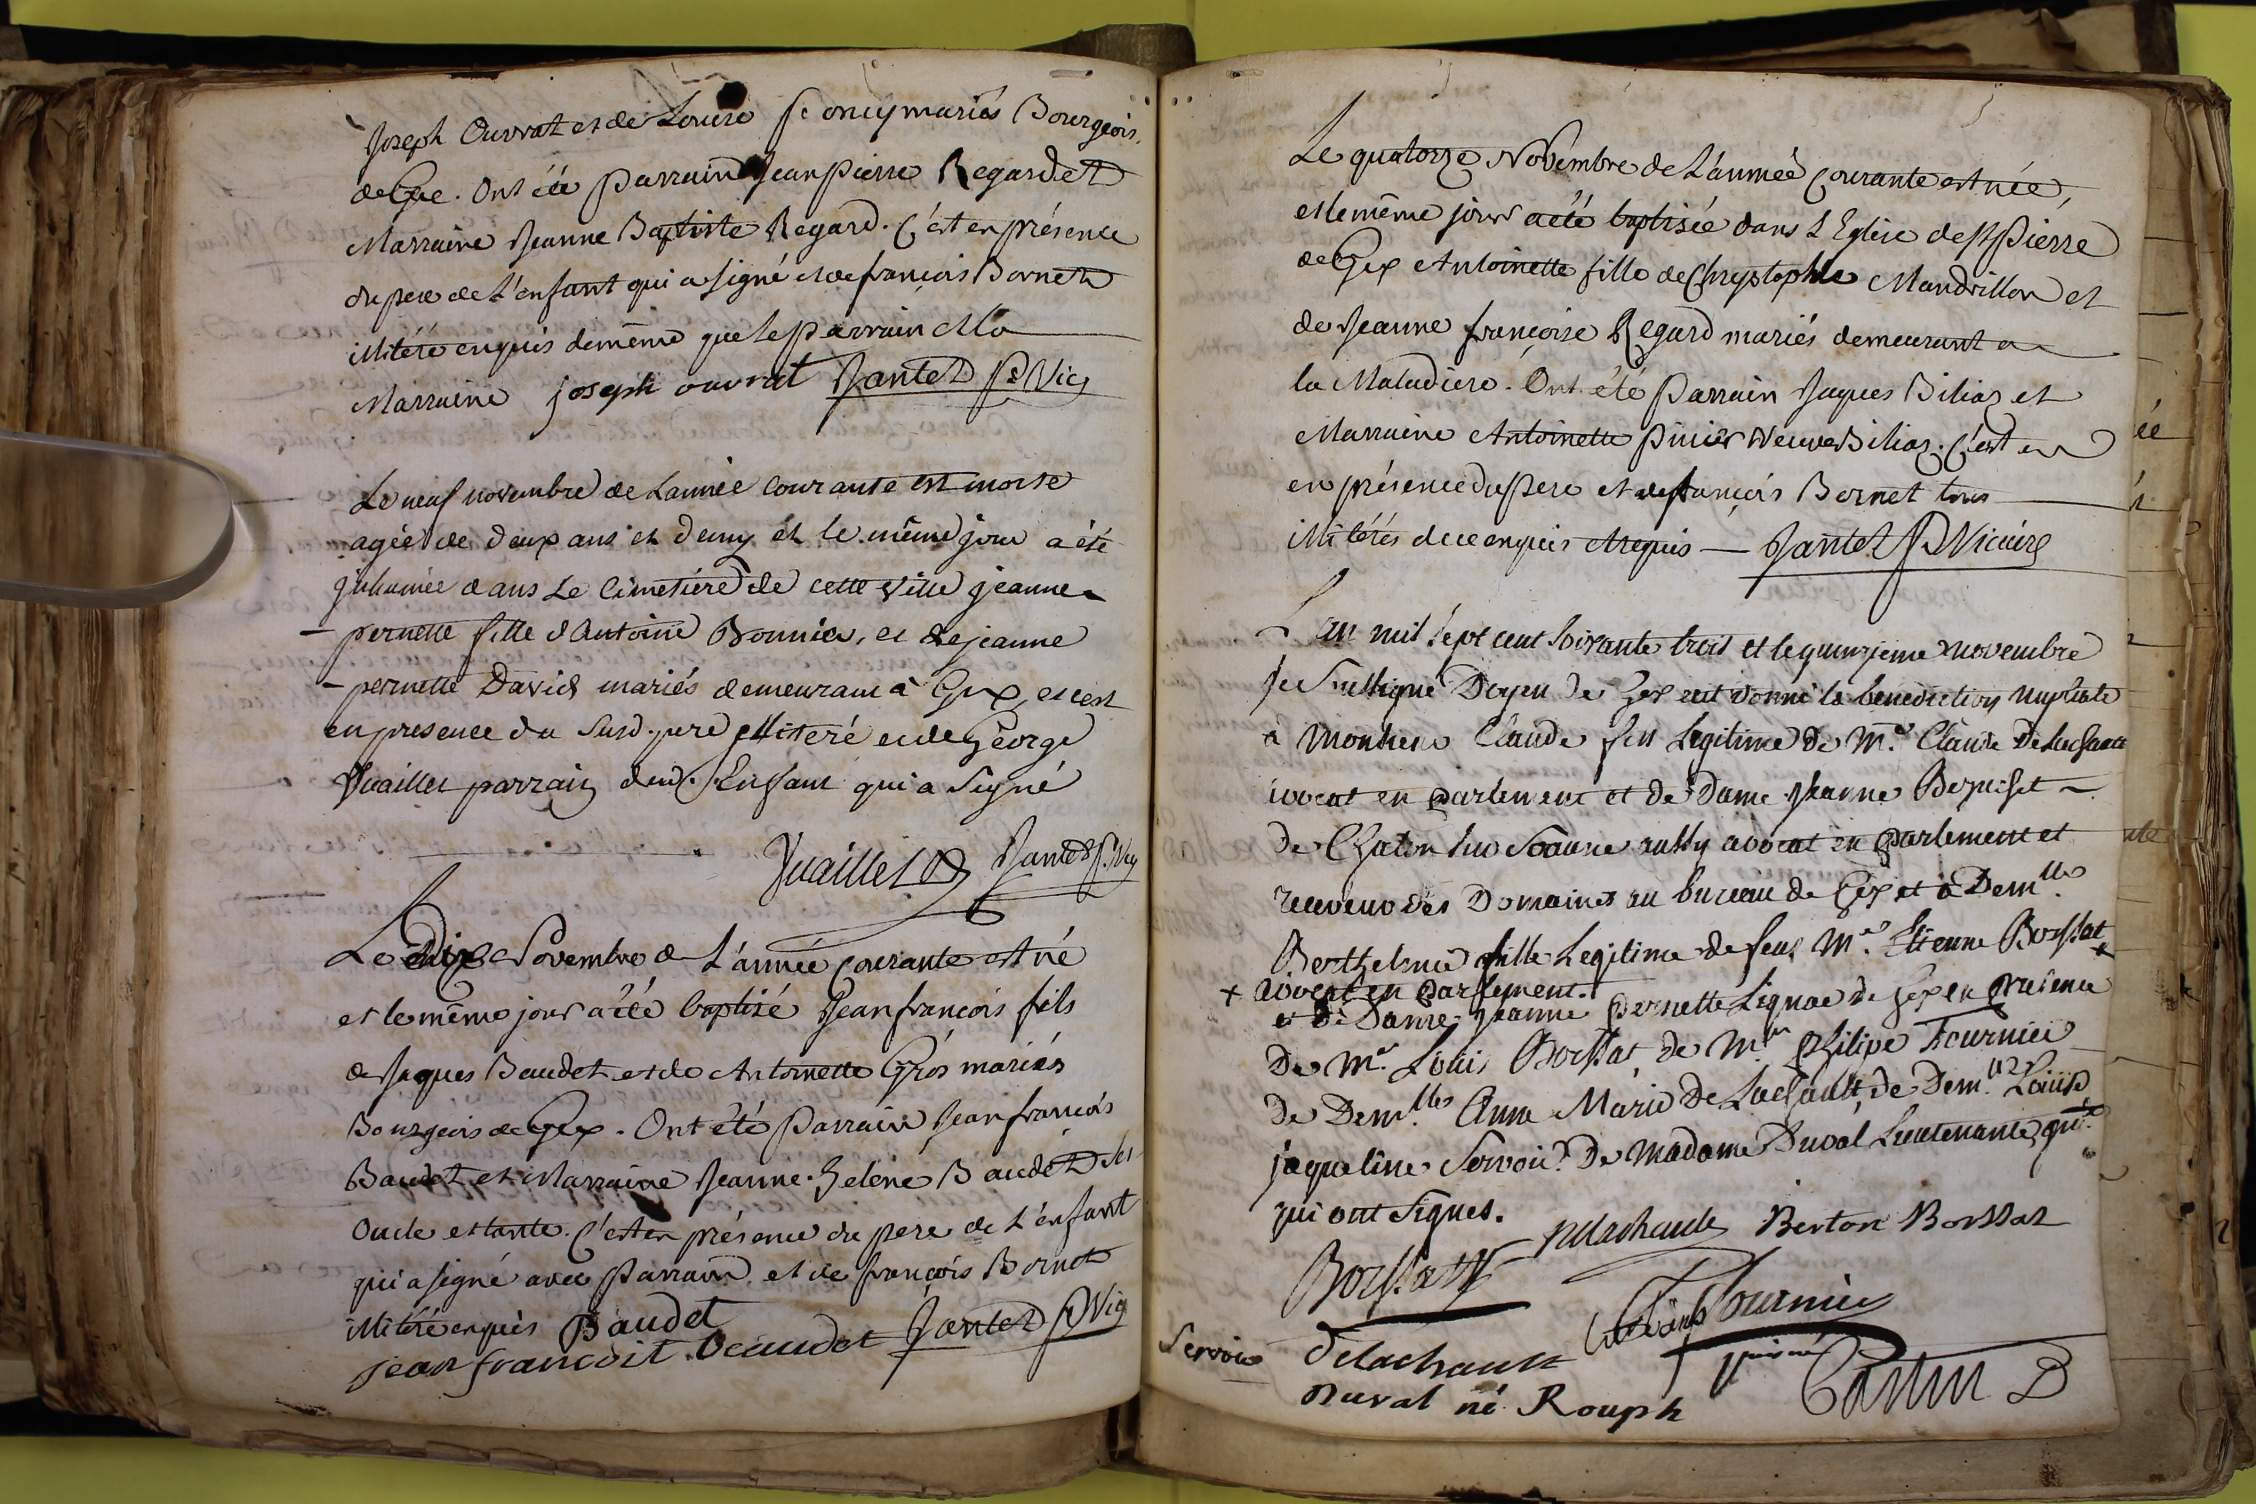 Joseph Ouvrat et de Louise mariés Bourgeois
de Gex. Ont été Parrain Jean Pierre Regard et
Marraine Jeanne Baptiste Regard. C'est en présence
du pere de l'enfant qui a signé et de françois Bornet
illitéré enquis de même que le Parrain et la
Marraine joseph ouvrat Jantet P. Vic
Le neuf novembre de L'année courante est morte
agée de deux ans et demy et le même jour a été
inhumée dans Le Cimetiére de cette ville jeanne
pernette fille d'Antoine Bonnier, et de jeanne
pernette David mariés demeurant à Gex, et cest
en presence du Susd. pere illiteré et de George
Vuaillet parrain dud. Enfant qui a Signé
Vuaillet Jantet P. Vic
Le dix Novembre de L'année courante est né
et le même jour a été baptisé Jean françois fils
de Jaques Baudet et de Antoinette Gros mariés
Bourgeois de Gex. Ont été Parrain Jean françois
Baudet et Marraine Jeanne Helene Baudet ses
Oncle et tante. C'est en présence du pere de l'enfant
qui a signé avec Parrain et de françois Bornet
illitéré enquis Baudet
jean françoit Beaudet Jantet P. Vic
Le quatorze Novembre de L'année courante est née,
et le même jour a été baptisée dans L'Eglise de St Pierre
de Gex Antoinette fille de Chrystophle Mandrillon et
de Jeanne françoise Regard mariés demeurant a
la Maladiere. Ont été Parrain Jaques Biliaz et
Marraine Antoinette veuve Biliaz. C'est en
en présence du Pere et de françois Bornet tous
illitérés de ce enquis et requis — Jantet P. Vicaire
L'an mil sept cent soixante trois et le quinzieme novembre
Je Soussigné Doyen de Gex ait donné la benediction nuptiale
à Monsieur Claude fils Legitime de Mre Claude Delachaut
avocat en parlement et de Dame Jeanne
de Chalon sur Soaune aussy avocat en parlement et
receveur des Domaines au bureau de Gex et à Demlle
Berthelmie fille Legitime de feus Mre Etienne Borssat +
+ avocat en parlement.
et de Dame Jeanne Pernette Lignac de Gex en presence
De Mr. Louis Borssat, de Mr Philipe Fournier
de Demlles Anne Marie De Lachault, de Demlle Louise
jaqueline Servoir. De Madame Duval Lieutenante
qui ont signes.
Delachault Berton Borssat
Borssat
Fournier
Servoir Delachault
Castin D
Duval né Rouph